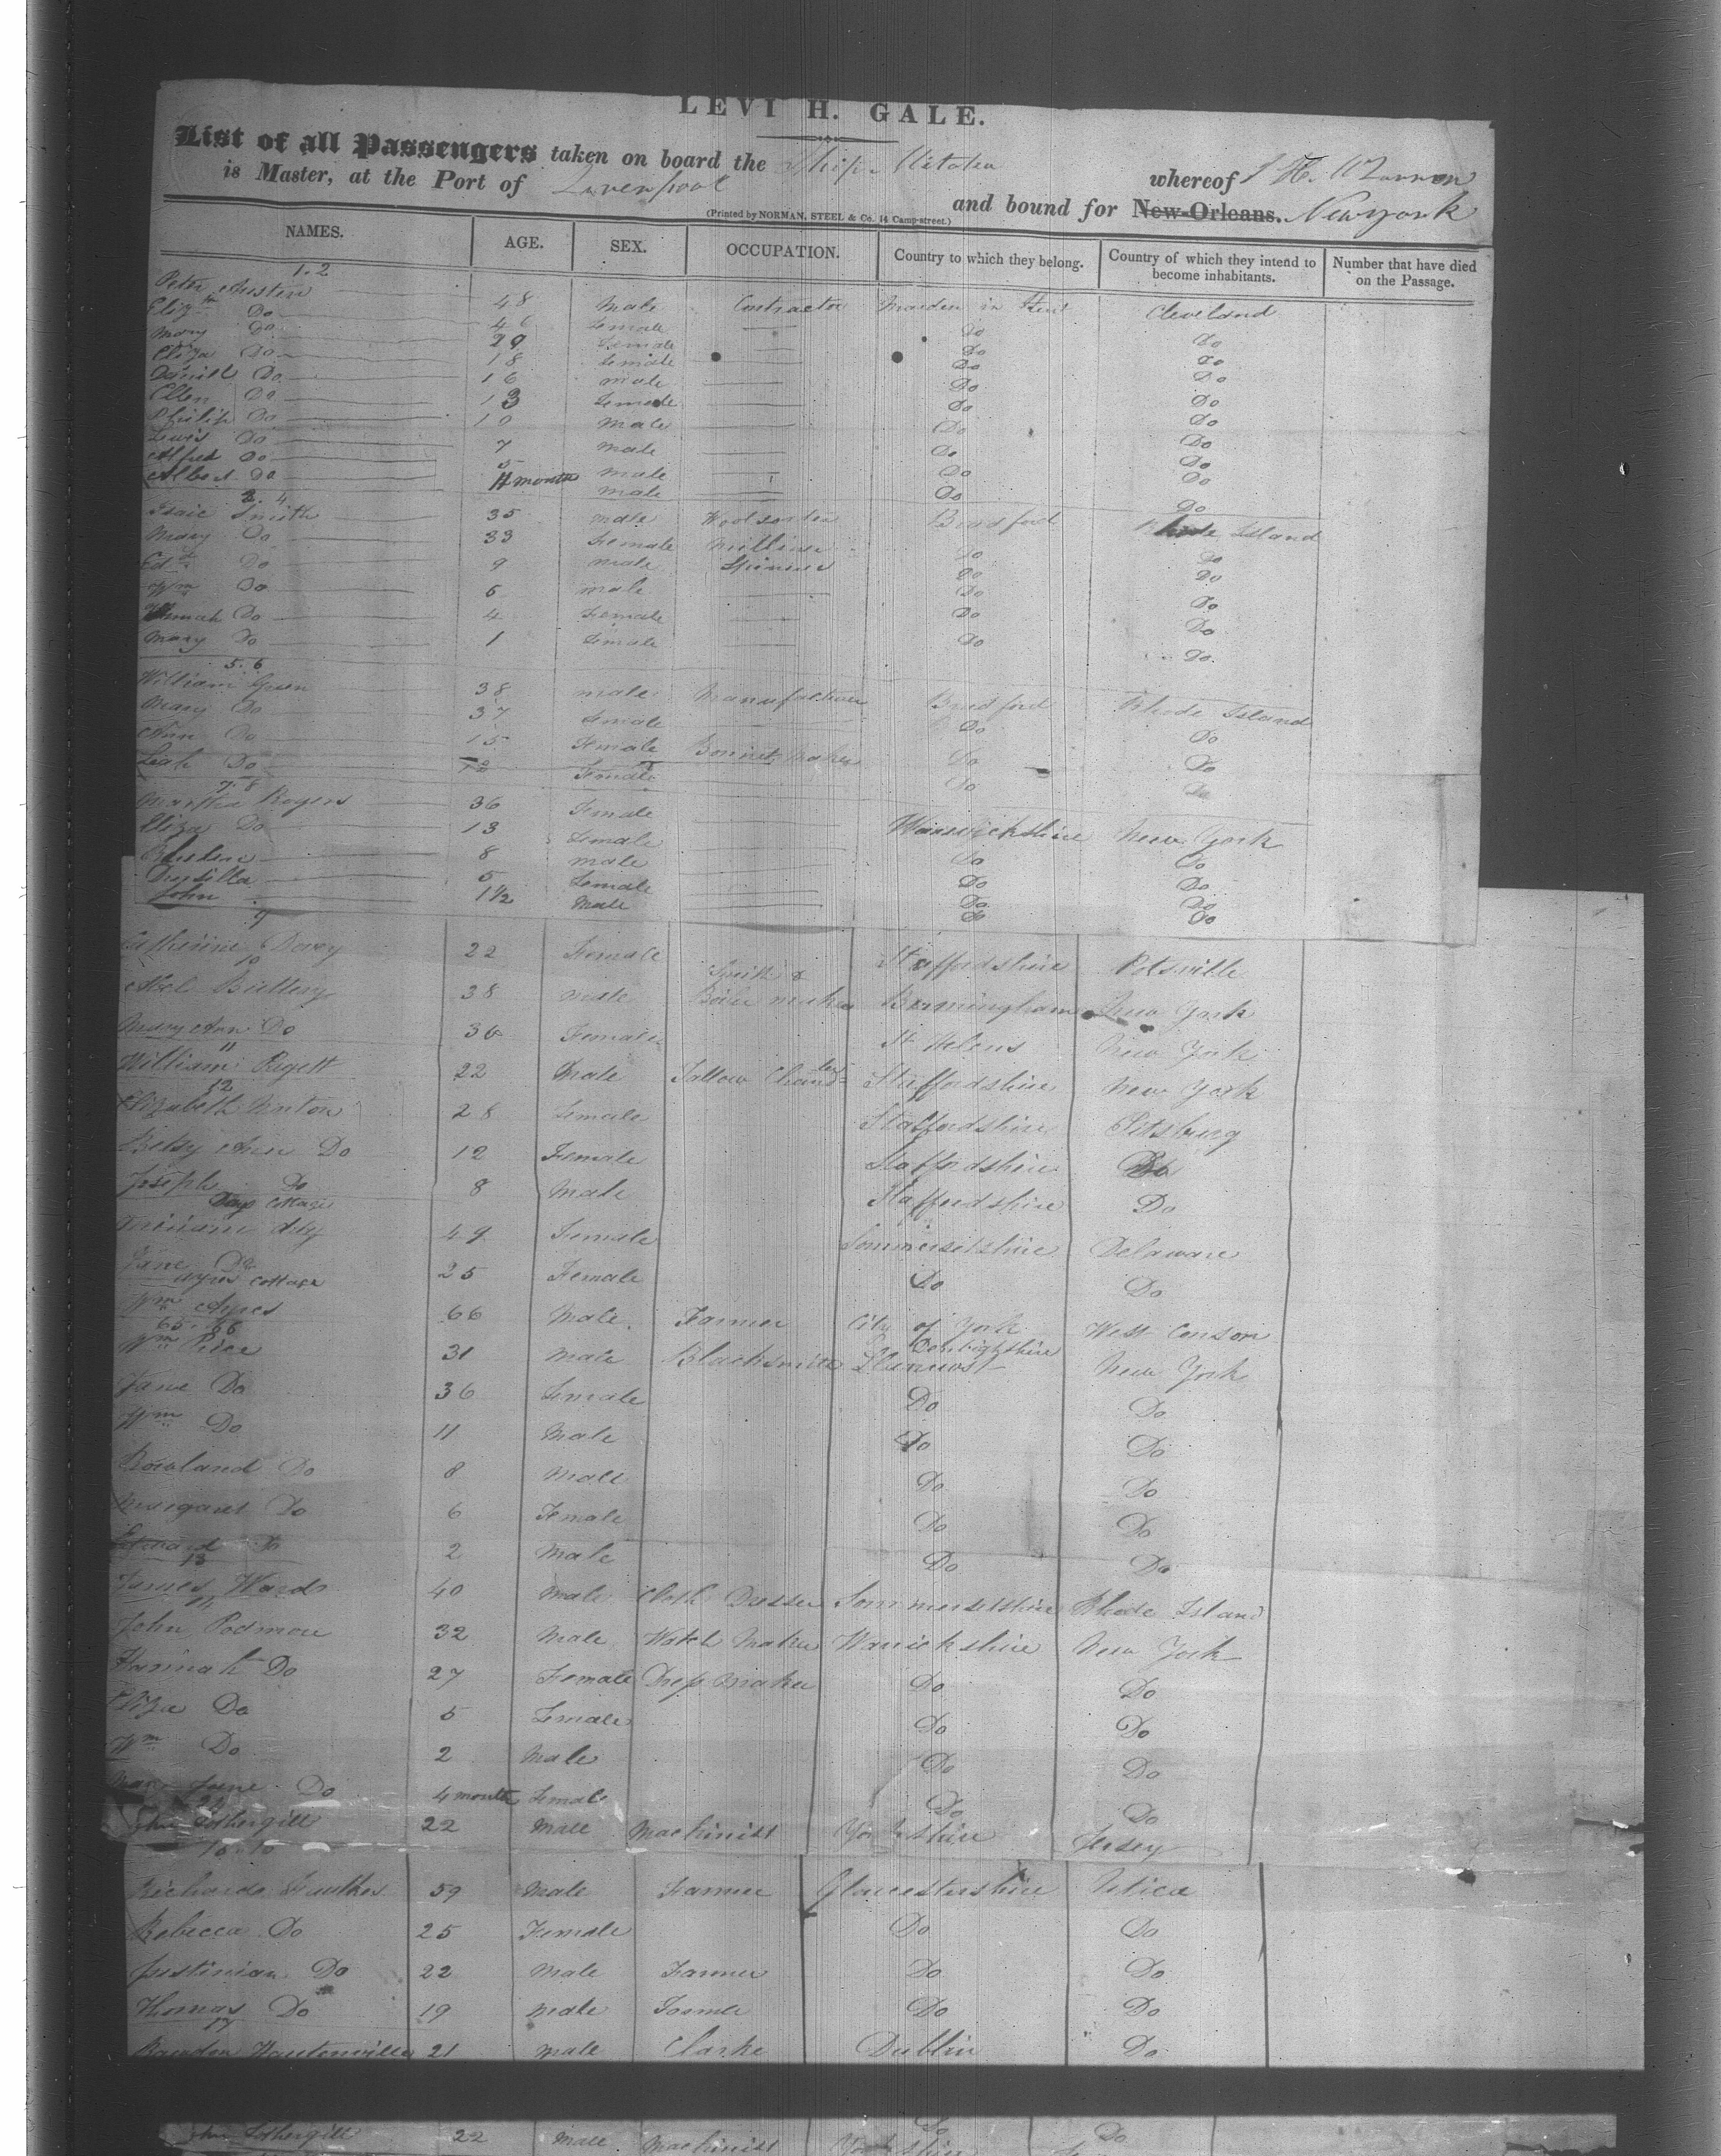 LEVI H. GALE.
List of all Passengers taken on board the Ship whereof
is Master, at the Port of Liverpool and bound for New-Orleans. New york
(Printed by NORMAN, STEEL & Co. 14 Camp-street.)
NAMES. AGE. SEX. OCCUPATION. Country to which they belong. Country of which they intend to become inhabitants. Number that have died on the Passage.
1. 2
Peter Austin 48 Male Contractor in Cleveland
Elizth Do 46 Female Do Do
Mary Do 29 Female Do Do
Eliza Do 18 Female Do Do
Daniell Do 16 male Do Do
Ellen Do 13 Female Do Do
Philip Do 10 Male Do Do
Lewis Do 7 male Do Do
Alfred Do 5 male Do Do
Albert Do 4 month male Do Do
3. 4
Isaic Smith 35 male Woolsorter Bradford Rhode Island
Mary Do 33 Female Milliner Do Do
Edd Do 9 male Spinner Do Do
Wm Do 6 male Do Do
Do 4 Female Do Do
Mary Do 1 Female Do Do
5. 6
William Green 38 male Manufacturer Bradford Rhode Island
Mary Do 37 Female Do Do
Ann Do 15 Female Bonnet Maker Do Do
Leah Do 12 Female Do Do
7. 8
Martha Rogers 36 Female Warwickshire New York
Eliza Do 13 Female Do Do
8 male Do Do
Drusilla 5 Female Do Do
John 1½ Male Do Do
9
Catherine 22 Female Staffordshire Potsville
10
Abel Buttery 38 male Smith & Boiler maker Birmingham New York
Mary Ann Do 36 Female St Helens New York
11
William Pigett 22 Male Tallow Chandler Staffordshire New York
12
Elizabeth Norton 28 Female Staffordshire Pitsburg
Betsy Ann Do 12 Female Staffordshire Do
Joseph Do 8 Male Staffordshire Do
Days Cottage
49 Female Sommersetshire Delaware
Jane Do 25 Female Do Do
Ayres Cottage
Wm Ayres 66 Male Farmer City of York West Conson
65. 66
Wm Price 31 Male Blacksmith Denbighshire Llanrwst New York
Jane Do 36 Female Do Do
Wm Do 11 Male Do Do
Rowland Do 8 Male Do Do
Margaret Do 6 Female Do Do
Edward Do 2 Male Do Do
13
James Wards 40 Male Cloth Dresser Sommersetshire Rhode Island
14
John Podmore 32 Male Watch Maker Warrickshire New York
Hannah Do 27 Female Dress Maker Do Do
Eliza Do 5 Female Do Do
Wm Do 2 Male Do Do
Mary Jane Do 4 month Female Do Do
John Fothergill 22 Male Machinist Yorkshire Jersey
Richard 59 Male Farmer Gloucestershire Utica
Rebecca Do 25 Female Do Do
Justinian Do 22 Male Farmer Do Do
Thomas Do 19 Male Farmer Do Do
17
21 Male Clarke Dublin Do
Do Do
John Fothergill 22 Male Machinist Yorkshire